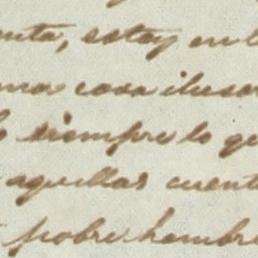 enta, estoy en l
una cosa ilusor
siempre lo qu
aquellas cuenta
pobre hombre